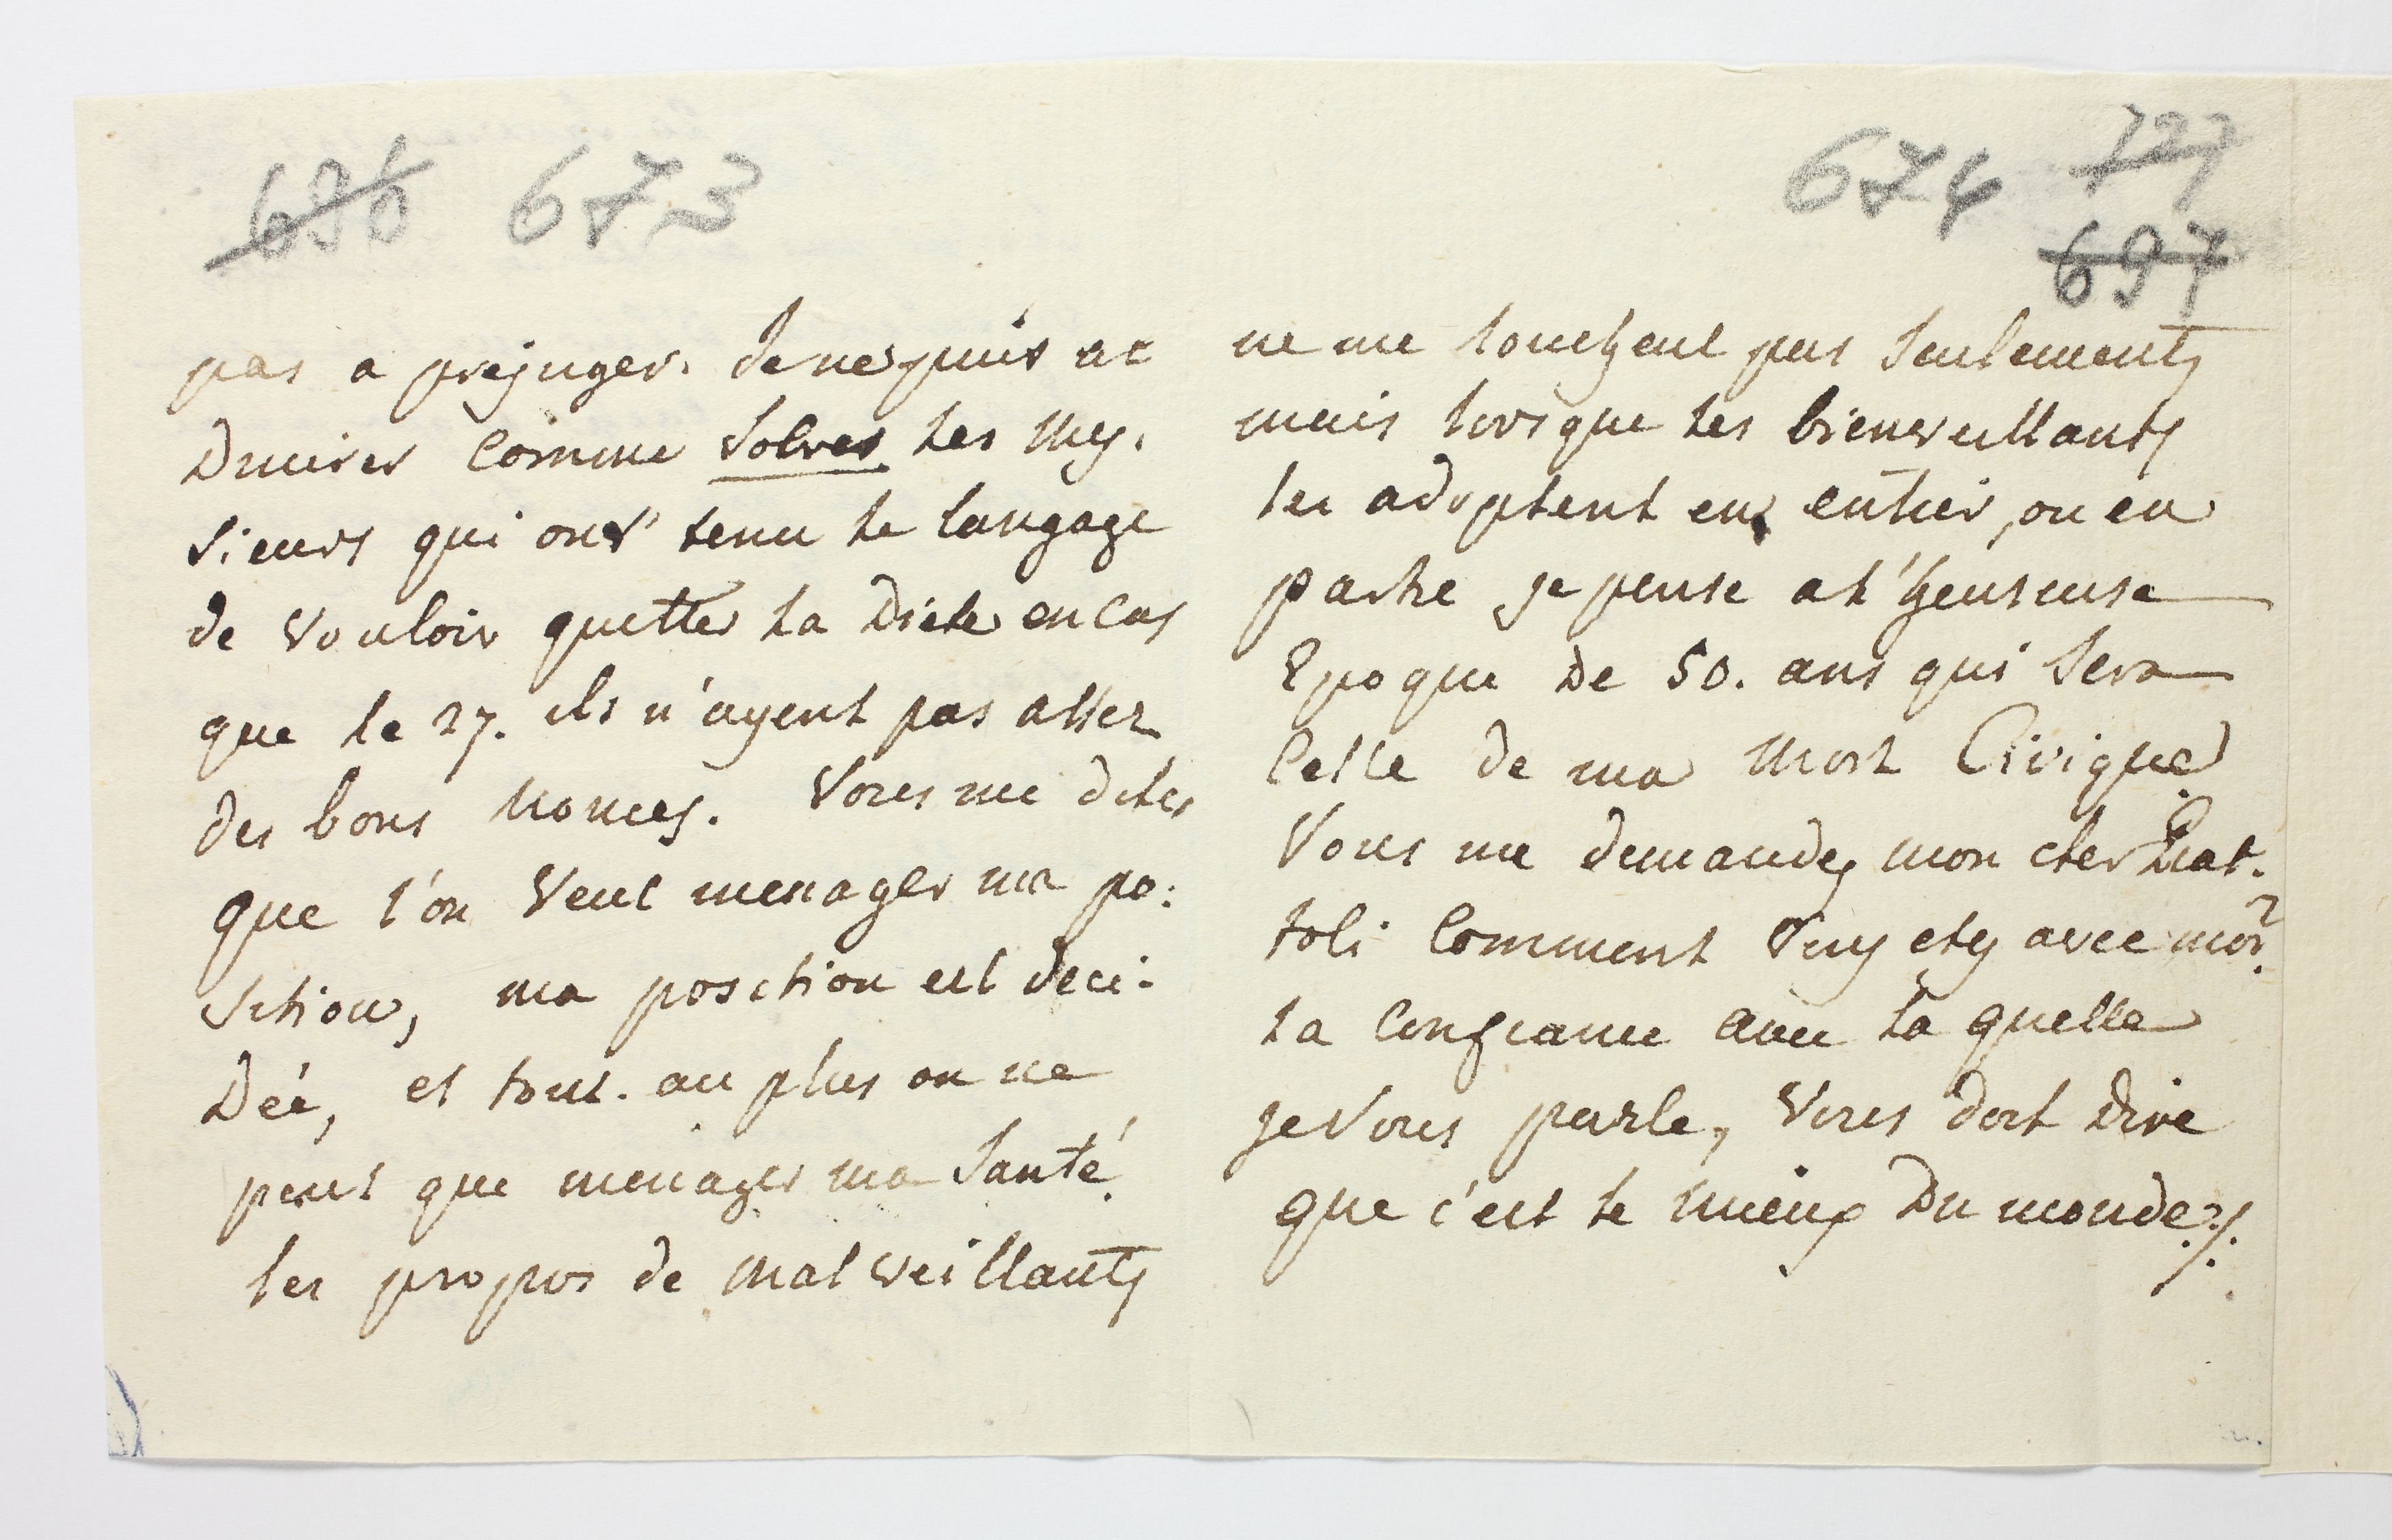 696 673
pas a préjuger. Je ne puis at
Dmirer Comme Solves les Mes.
sieurs qui ont tenu le langage
de Vouloir quitter la Diete en Cas
que le 27. ils n'ayent pas assez
des bons Nonces. Vous me dites
que l'on Veut menager ma po:
sition, ma position est deci:
Déé, et tout. au plus on ne
peut que menager ma Santé.
les propos de malveillants
674 727
697
ne me touchent pas Seulements
mais lorsque les bienveillants
les adoptent en entier, ou en
partie je pense a l'heureuse
Epoque de 50. ans qui Sera
Celle de ma Mort Civique.
Vous me demandes mon cher Piat.
toli Comment Vous etes avec moi?
la Confiance avec la quelle
je Vous parle, Vous doit Dire
que c'est le mieux Du monde ./.